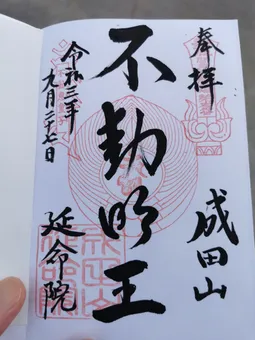 奉拝
成田山
不動明王
令和三年
九月二十七日
延命院